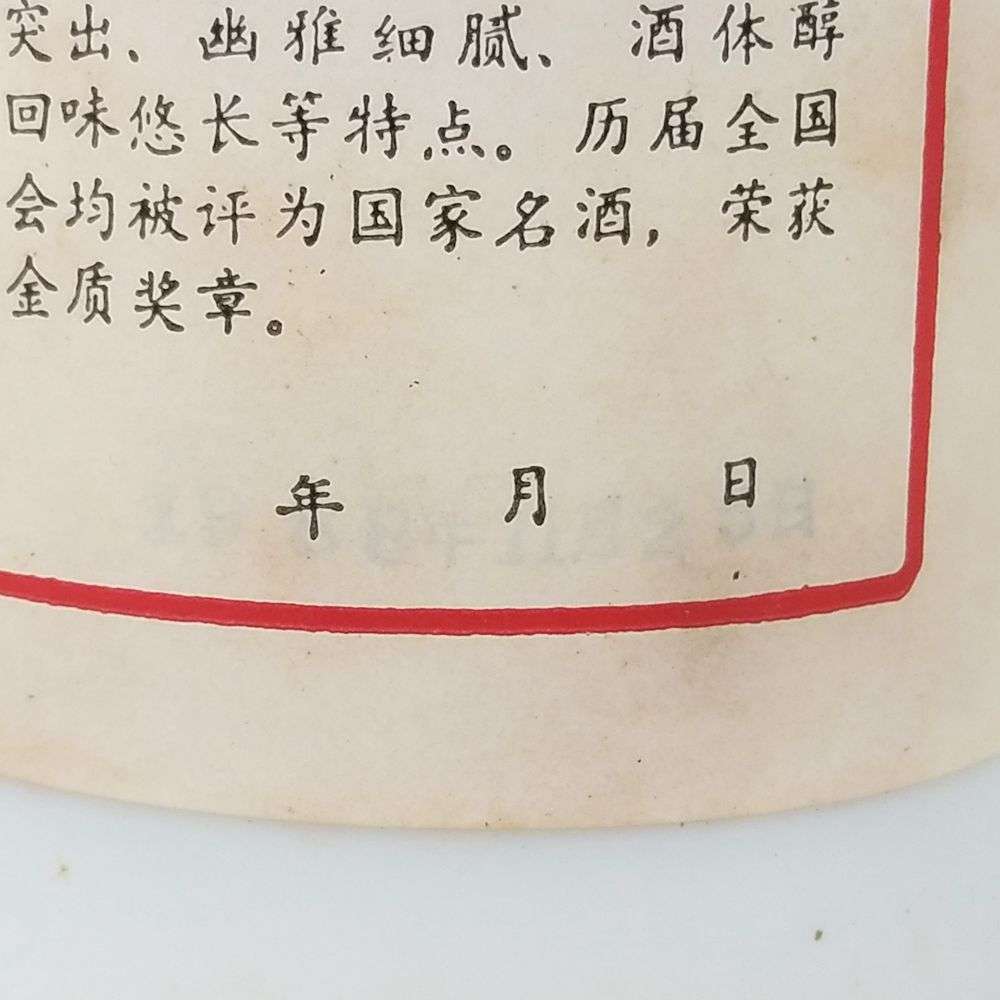 突出、幽雅细腻、酒体醇
回味悠长等特点。历届全国
会均被评为国家名酒，荣获
金质奖章。
年 月 日